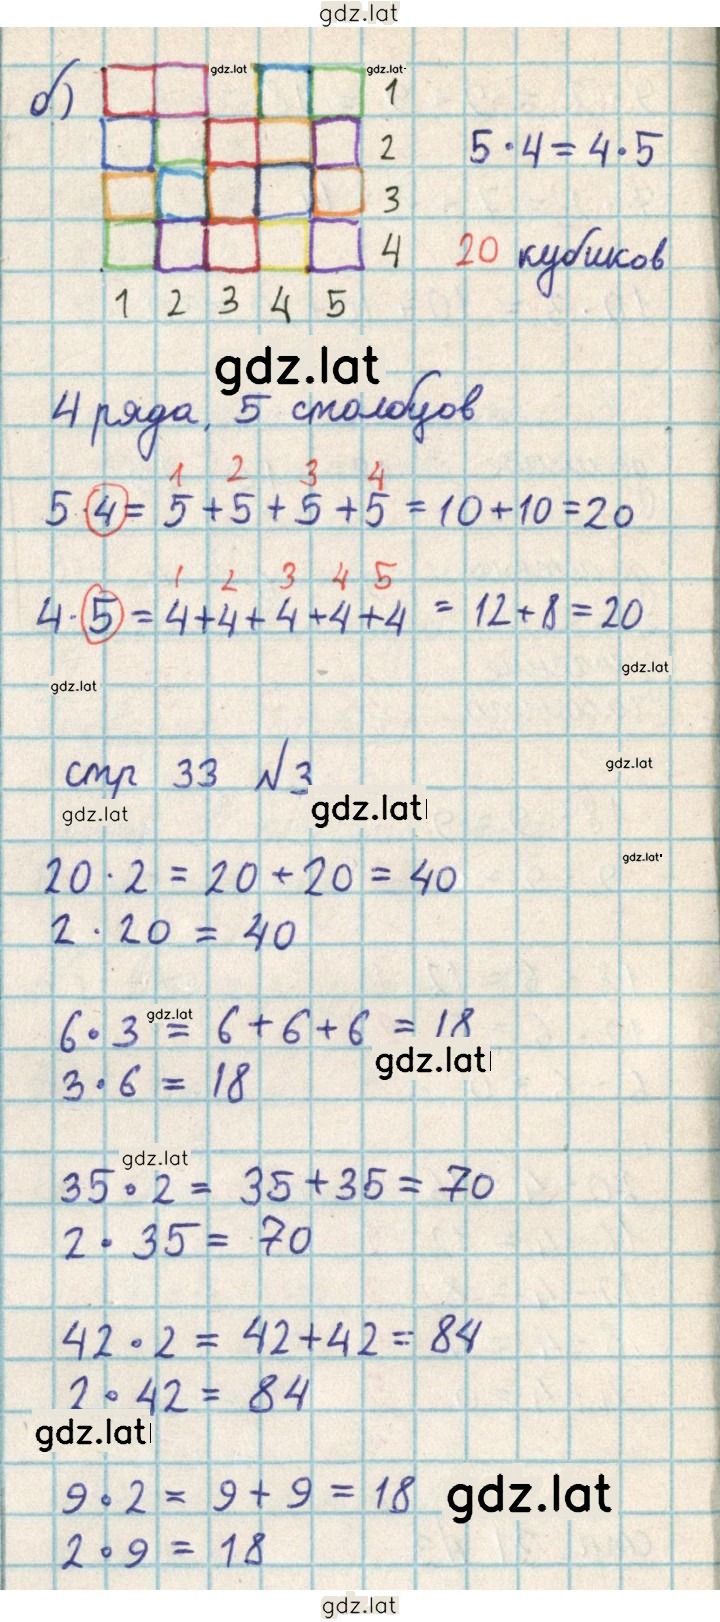 gdz.lat
б) gdz.lat gdz.lat 1
2 5·4=4·5
3
4 20 кубиков
1 2 3 4 5
gdz.lat
4 ряда, 5 столбцов
1 2 3 4
5·4= 5+5+5+5 = 10+10=20
1 2 3 4 5
4·5 = 4+4+4+4+4 = 12+8=20
gdz.lat
gdz.lat
стр 33 №3 gdz.lat
gdz.lat gdz.lat
gdz.lat
20·2 = 20+20 = 40
2·20 = 40
6·3 gdz.lat = 6+6+6 = 18
gdz.lat
3·6 = 18
gdz.lat
35·2 = 35+35 = 70
2·35 = 70
42·2 = 42+42 = 84
2·42 = 84
gdz.lat
9·2 = 9+9 = 18 gdz.lat
2·9 = 18
gdz.lat